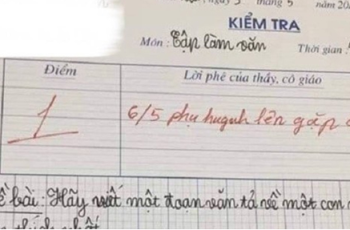 ngày 3 tháng 5 năm 20
KIỂM TRA
Môn: Tập làm văn Thời gian
Điểm Lời phê của thầy, cô giáo
1 6/5 phụ huynh lên gặp
ề bài: Hãy viết một đoạn văn tả về một con
thích nhất